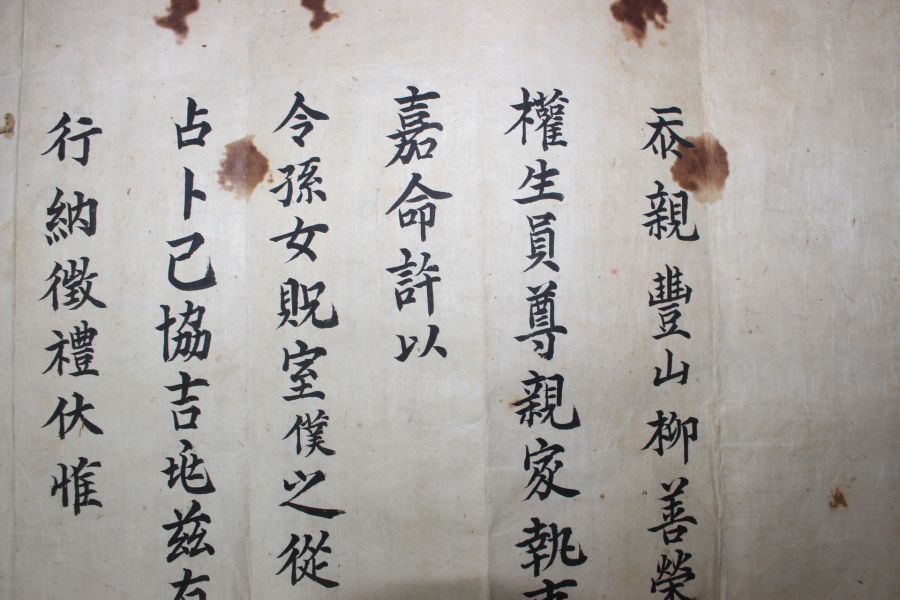 忝親豊山柳善榮
權生員尊親家執事
嘉命許以
令孫女貺室僕之從
占卜已協吉兆玆有
行納徵禮伏惟